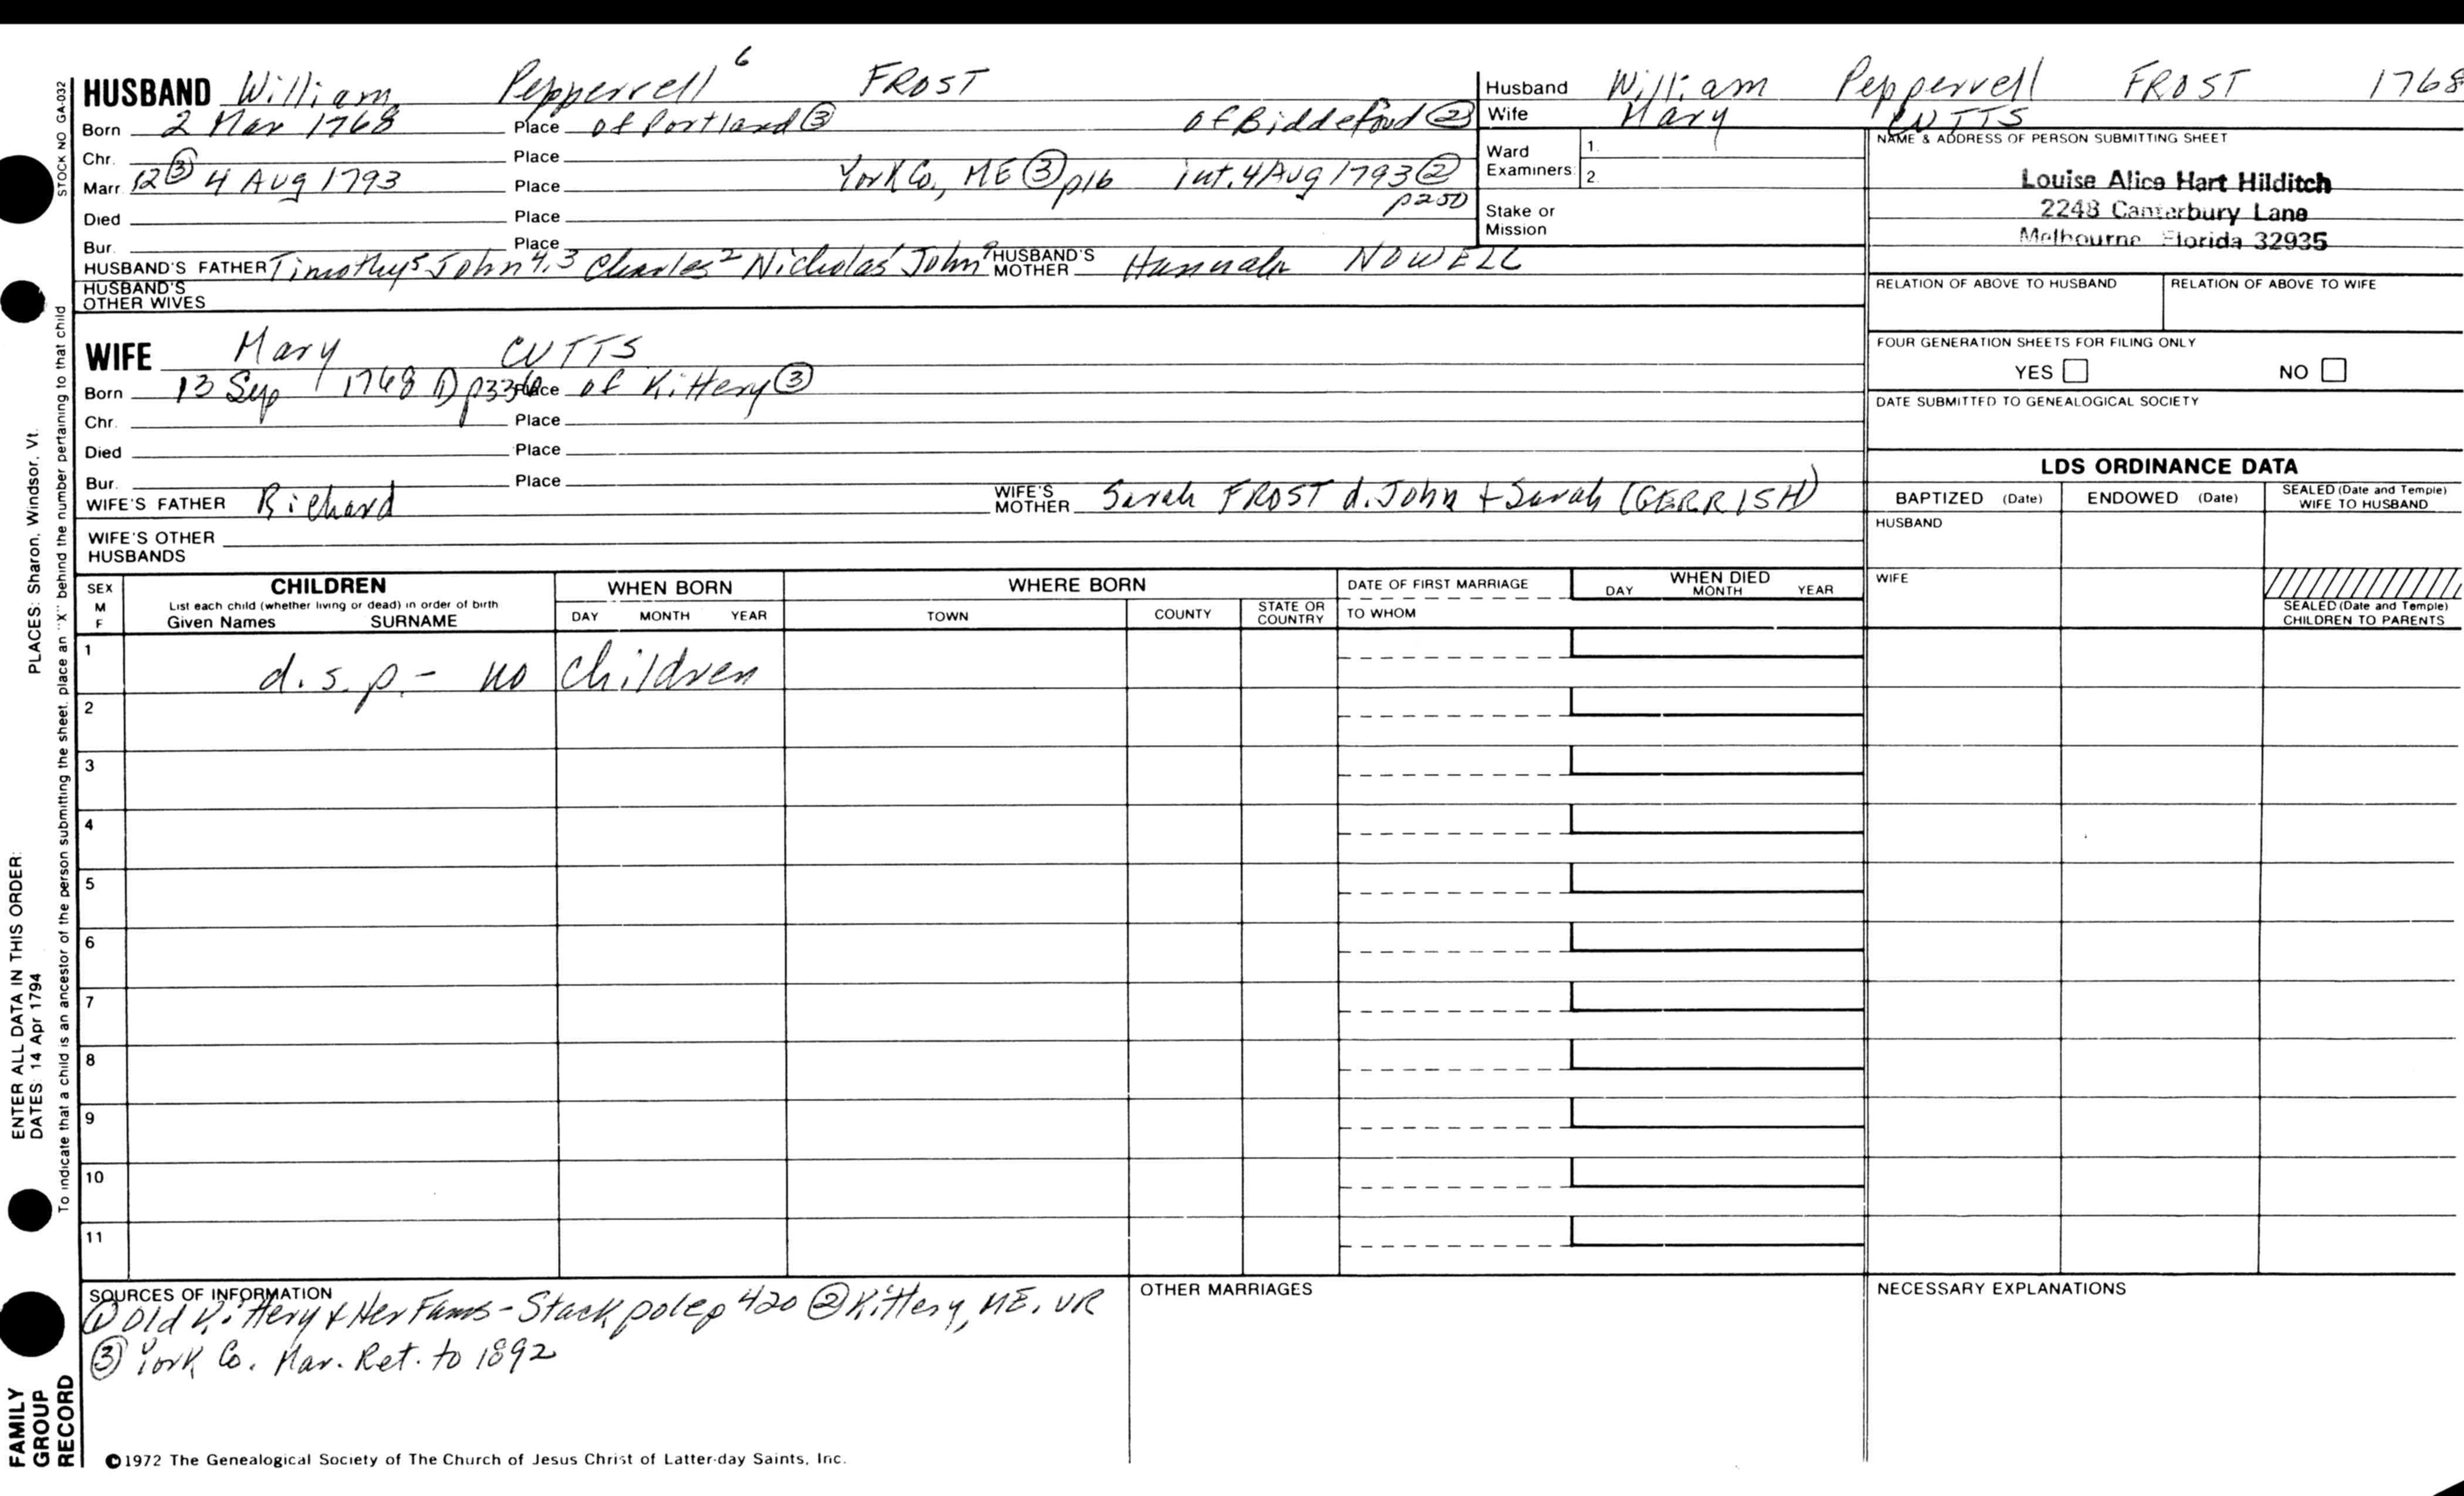 HUSBAND William Pepperrell⁶ FROST
Born 2 Mar 1768 Place of Portland ③ of Biddeford ②
Chr. Place
Marr. 12 ③ 4 Aug 1793 Place York Co, ME ③ p16 int. 4 Aug 1793 ② p250
Died Place
Bur. Place
HUSBAND'S FATHER Timothy⁵ John⁴,³ Charles² Nicholas¹ John⁹ HUSBAND'S MOTHER Hannah NOWELL
HUSBAND'S OTHER WIVES
Husband William Pepperrell FROST 1768
Wife Mary CUTTS
Ward Examiners: 1.
2.
Stake or Mission
NAME & ADDRESS OF PERSON SUBMITTING SHEET
Louise Alice Hart Hilditch
2248 Canterbury Lane
Melbourne Florida 32935
RELATION OF ABOVE TO HUSBAND RELATION OF ABOVE TO WIFE
FOUR GENERATION SHEETS FOR FILING ONLY
YES NO
DATE SUBMITTED TO GENEALOGICAL SOCIETY
WIFE Mary CUTTS
Born 13 Sep 1768 ① p336 Place of Kittery ③
Chr. Place
Died Place
Bur. Place
WIFE'S FATHER Richard WIFE'S MOTHER Sarah FROST d. John + Sarah (GERRISH)
WIFE'S OTHER HUSBANDS
LDS ORDINANCE DATA
BAPTIZED (Date) ENDOWED (Date) SEALED (Date and Temple) WIFE TO HUSBAND
HUSBAND
WIFE
SEALED (Date and Temple) CHILDREN TO PARENTS
SEX M F
CHILDREN
List each child (whether living or dead) in order of birth
Given Names SURNAME
WHEN BORN
DAY MONTH YEAR
WHERE BORN
TOWN COUNTY STATE OR COUNTRY
DATE OF FIRST MARRIAGE
TO WHOM
WHEN DIED
DAY MONTH YEAR
1 d.s.p. - no children
2
3
4
5
6
7
8
9
10
11
SOURCES OF INFORMATION
① Old Kittery & Her Fams - Stackpole p 420 ② Kittery, ME. VR
③ York Co. Mar. Ret. to 1892
OTHER MARRIAGES
NECESSARY EXPLANATIONS
©1972 The Genealogical Society of The Church of Jesus Christ of Latter-day Saints, Inc.
STOCK NO GA-032
To indicate that a child is an ancestor of the person submitting the sheet, place an "X" behind the number pertaining to that child
ENTER ALL DATA IN THIS ORDER:
DATES: 14 Apr 1794 PLACES: Sharon, Windsor, Vt.
FAMILY
GROUP
RECORD